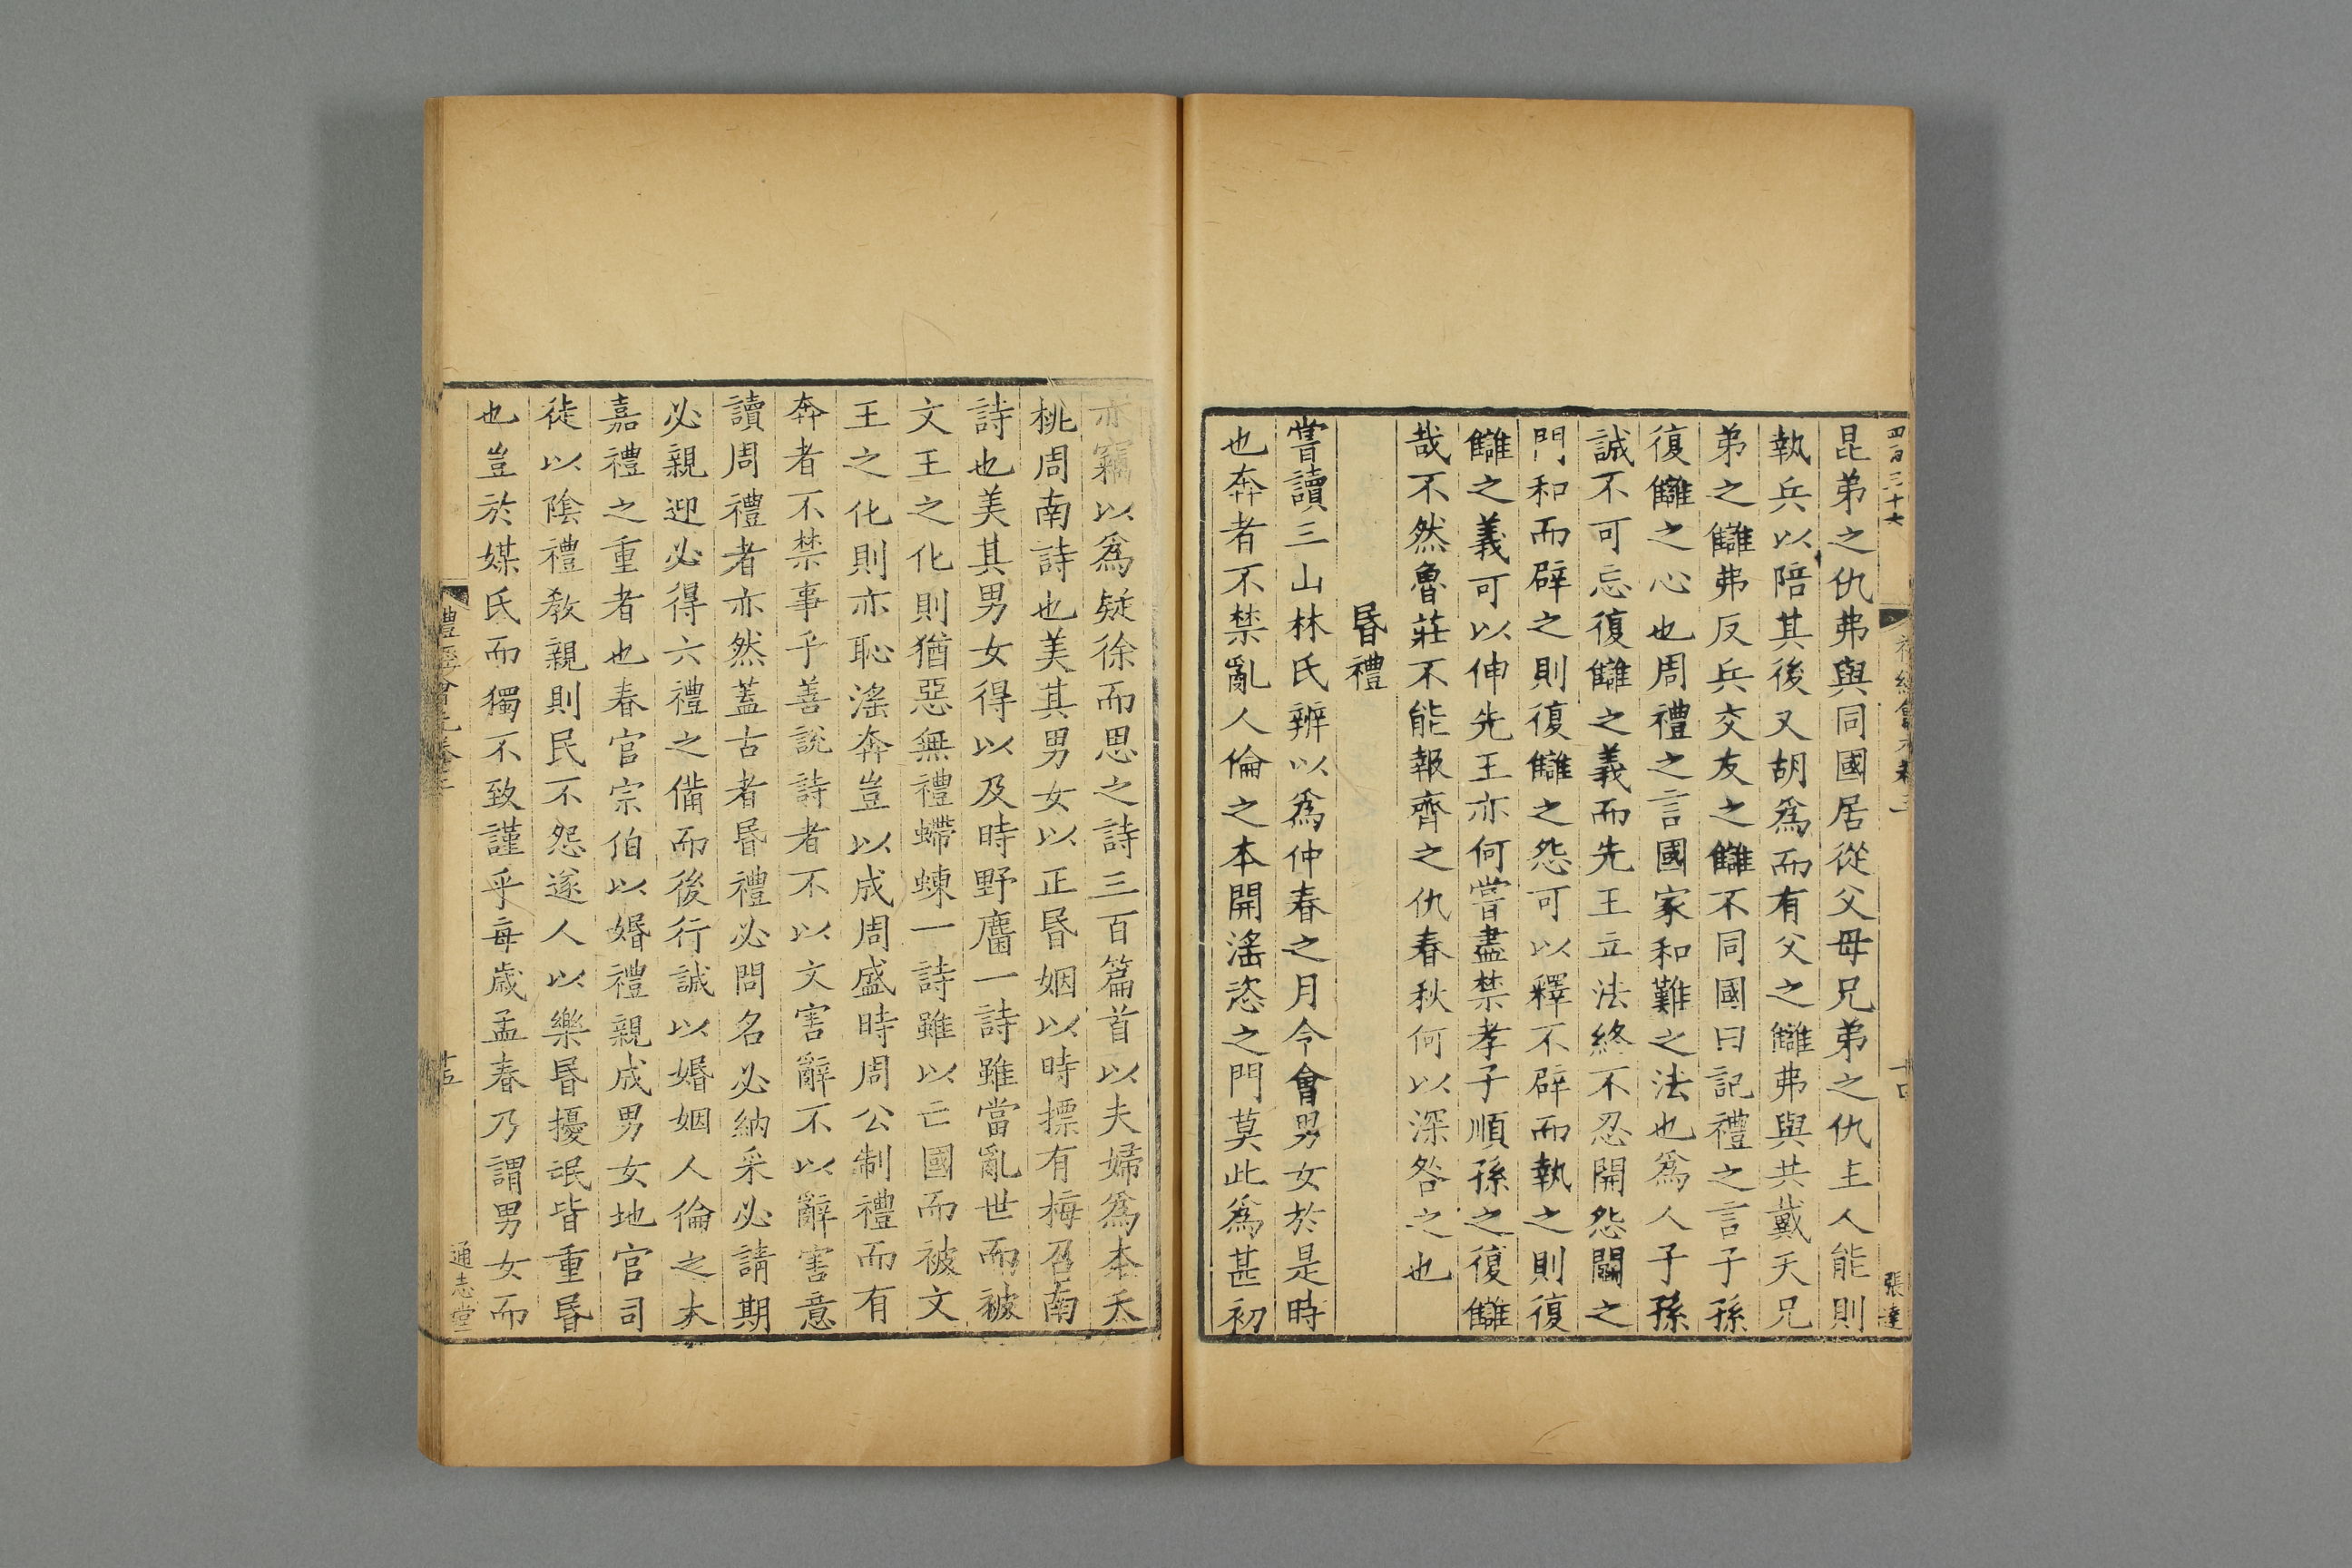 四百三十六
禮經會元卷三
十四
張達
昆弟之仇弗與同國居從父母兄弟之仇主人能則
執兵以陪其後又胡爲而有父之讎弗與共戴天兄
弟之讎弗反兵交友之讎不同國曰記禮之言子孫
復讎之心也周禮之言國家和難之法也爲人子孫
誠不可忘復讎之義而先王立法終不忍開怨鬬之
門和而辟之則復讎之怨可以釋不辟而執之則復
讎之義可以伸先王亦何嘗盡禁孝子順孫之復讎
哉不然魯莊不能報齊之仇春秋何以深咎之也
昬禮
嘗讀三山林氏辨以爲仲春之月令會男女於是時
也奔者不禁亂人倫之本開滛恣之門莫此爲甚初
亦竊以爲疑徐而思之詩三百篇首以夫婦爲本夭
桃周南詩也美其男女以正昬姻以時摽有梅召南
詩也美其男女得以及時野麕一詩雖當亂世而被
文王之化則猶惡無禮蝃蝀一詩雖以亡國而被文
王之化則亦恥滛奔豈以成周盛時周公制禮而有
奔者不禁事乎善說詩者不以文害辭不以辭害意
讀周禮者亦然蓋古者昬禮必問名必納采必請期
必親迎必得六禮之備而後行誠以婚姻人倫之本
嘉禮之重者也春官宗伯以婚禮親成男女地官司
徒以陰禮教親則民不怨遂人以樂昬擾氓皆重昬
也豈於媒氏而獨不致謹乎每歲孟春乃謂男女而
禮經會元卷三
十五
通志堂